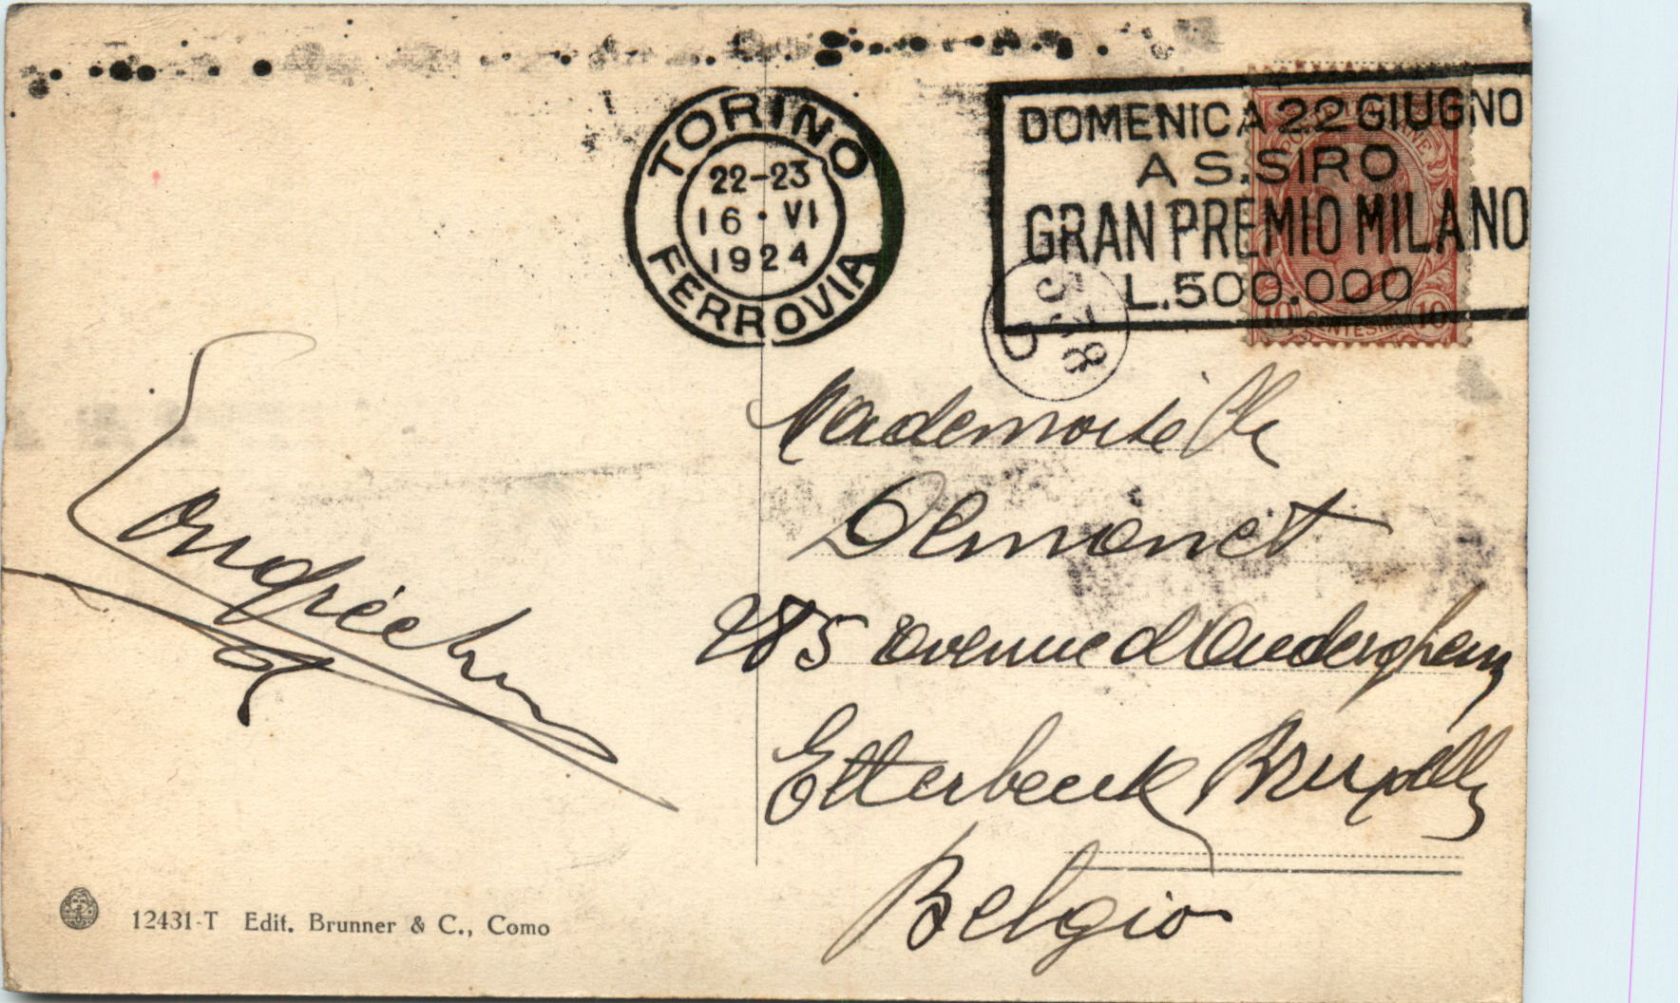 TORINO
22-23
16·VI
1924
FERROVIA
DOMENICA 22 GIUGNO
A S.SIRO
GRAN PREMIO MILANO
L.500.000
10 CENTESIMI 10
Mademoiselle
Demonet
285 avenue d'Auderghem
Etterbeek Bruxelles
Belgio
12431-T Edit. Brunner & C., Como